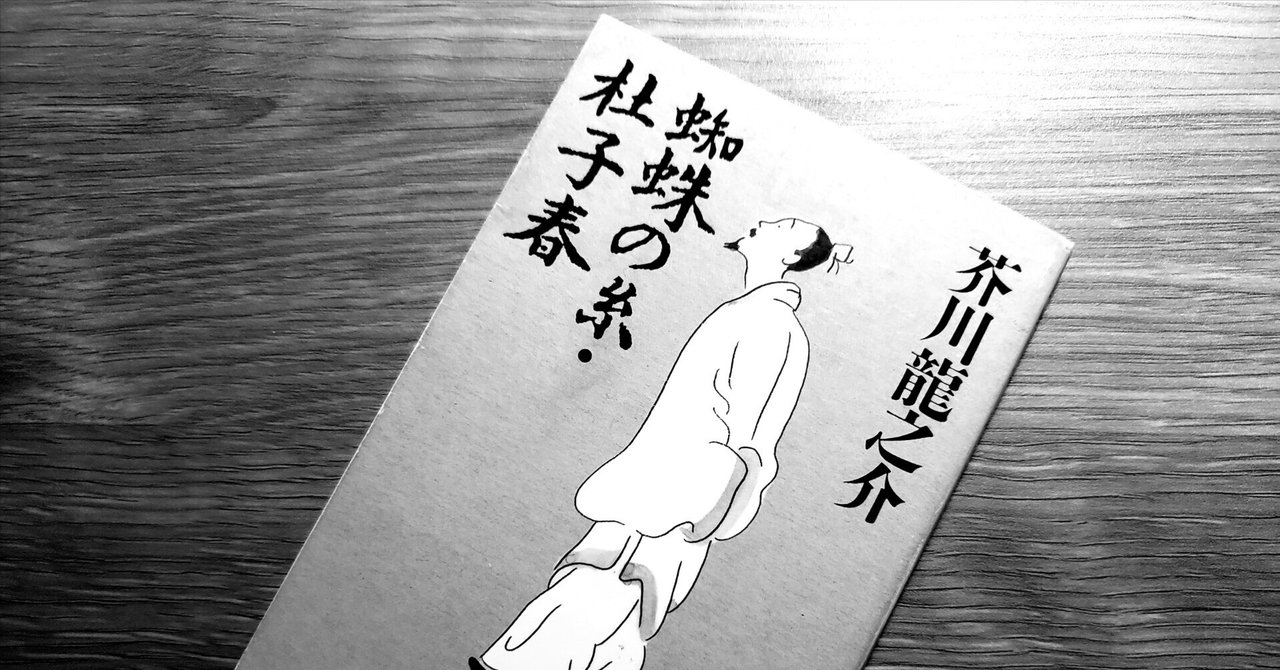 芥川龍之介
蜘蛛の糸・
杜子春